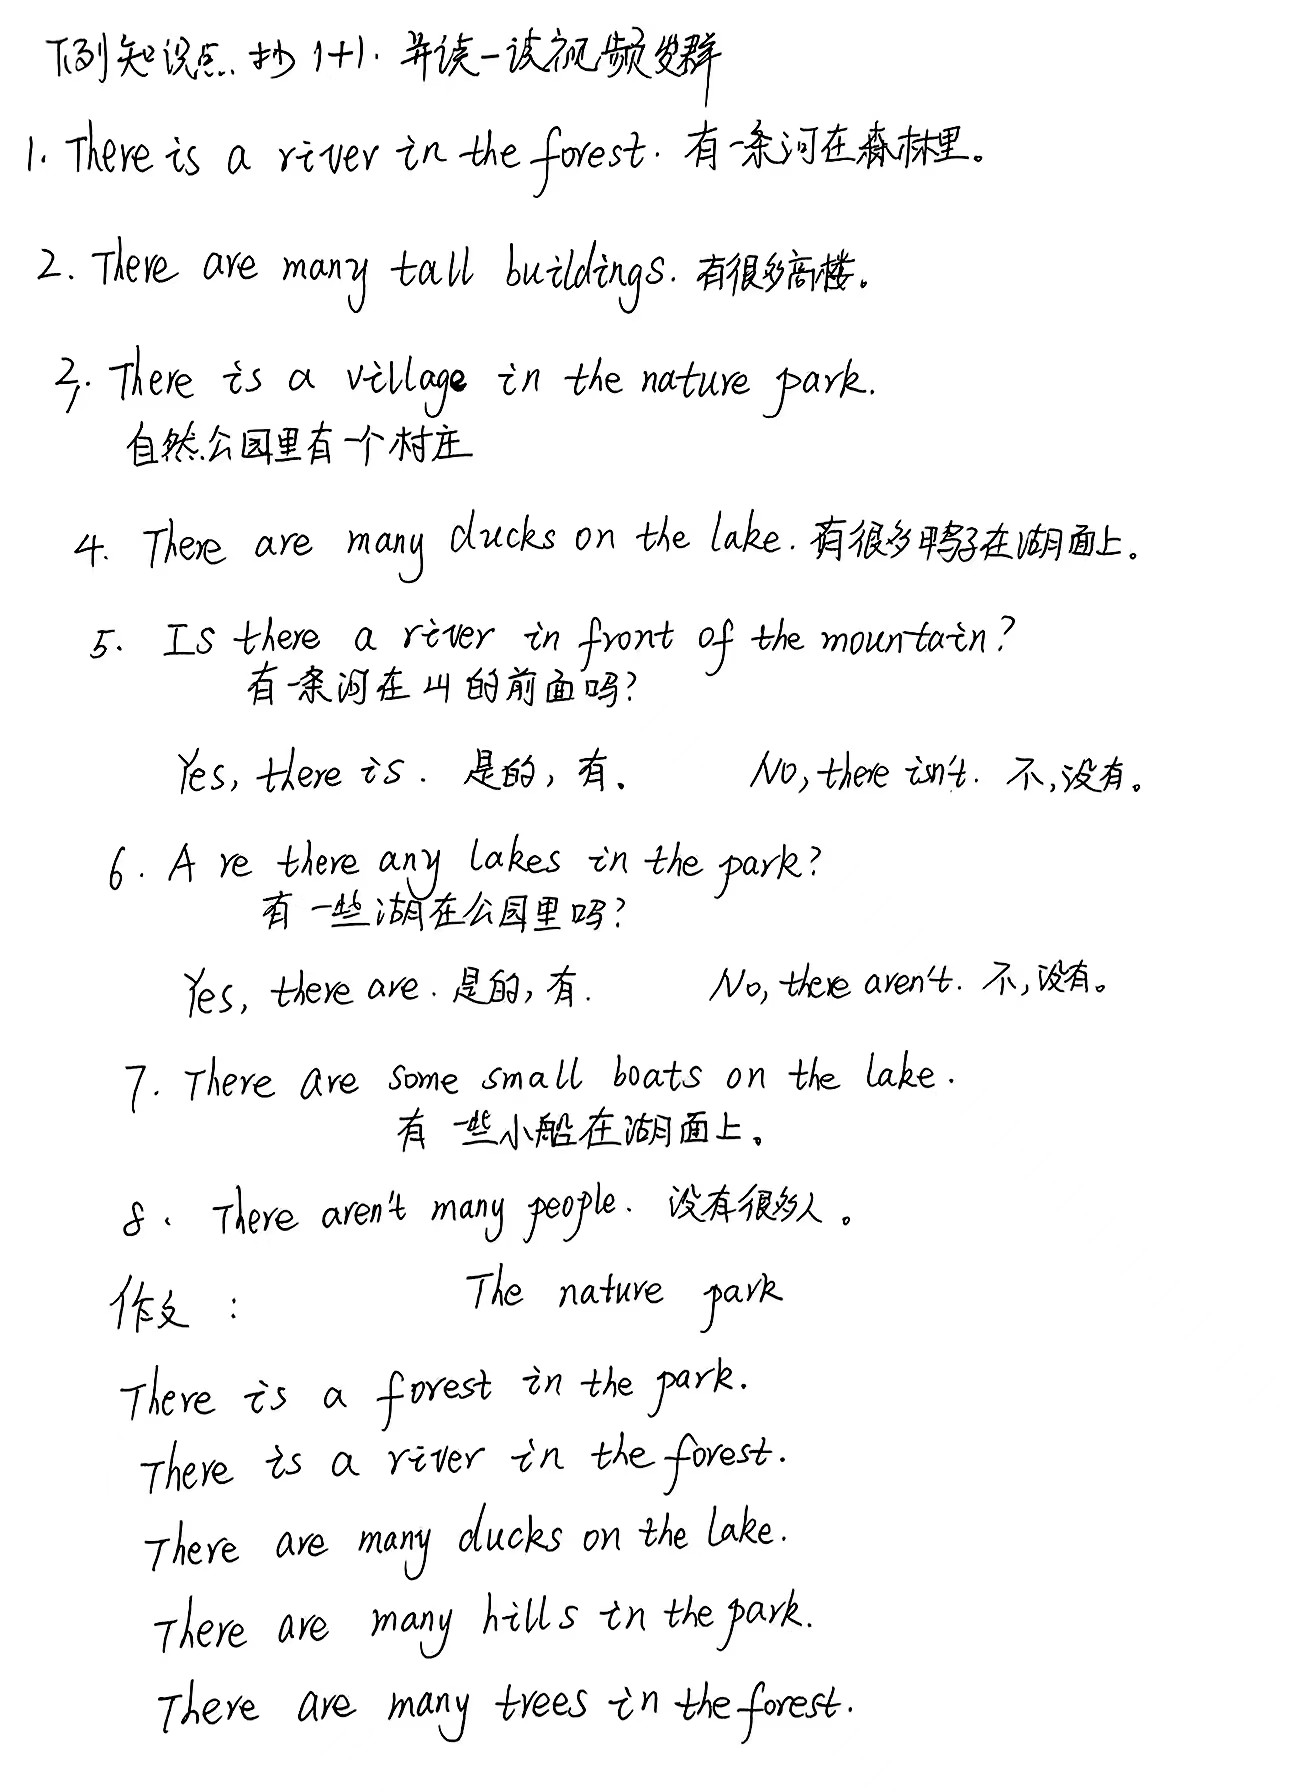 下列知识点.抄1+1.并读一读视频发群
1. There is a river in the forest. 有一条河在森林里。
2. There are many tall buildings. 有很多高楼。
3. There is a village in the nature park.
自然公园里有一个村庄
4. There are many ducks on the lake. 有很多鸭子在湖面上。
5. Is there a river in front of the mountain?
有一条河在山的前面吗?
Yes, there is. 是的,有. No, there isn't. 不,没有。
6. Are there any lakes in the park?
有一些湖在公园里吗?
Yes, there are. 是的,有. No, there aren't. 不,没有。
7. There are some small boats on the lake.
有一些小船在湖面上。
8. There aren't many people. 没有很多人。
作文: The nature park
There is a forest in the park.
There is a river in the forest.
There are many ducks on the lake.
There are many hills in the park.
There are many trees in the forest.